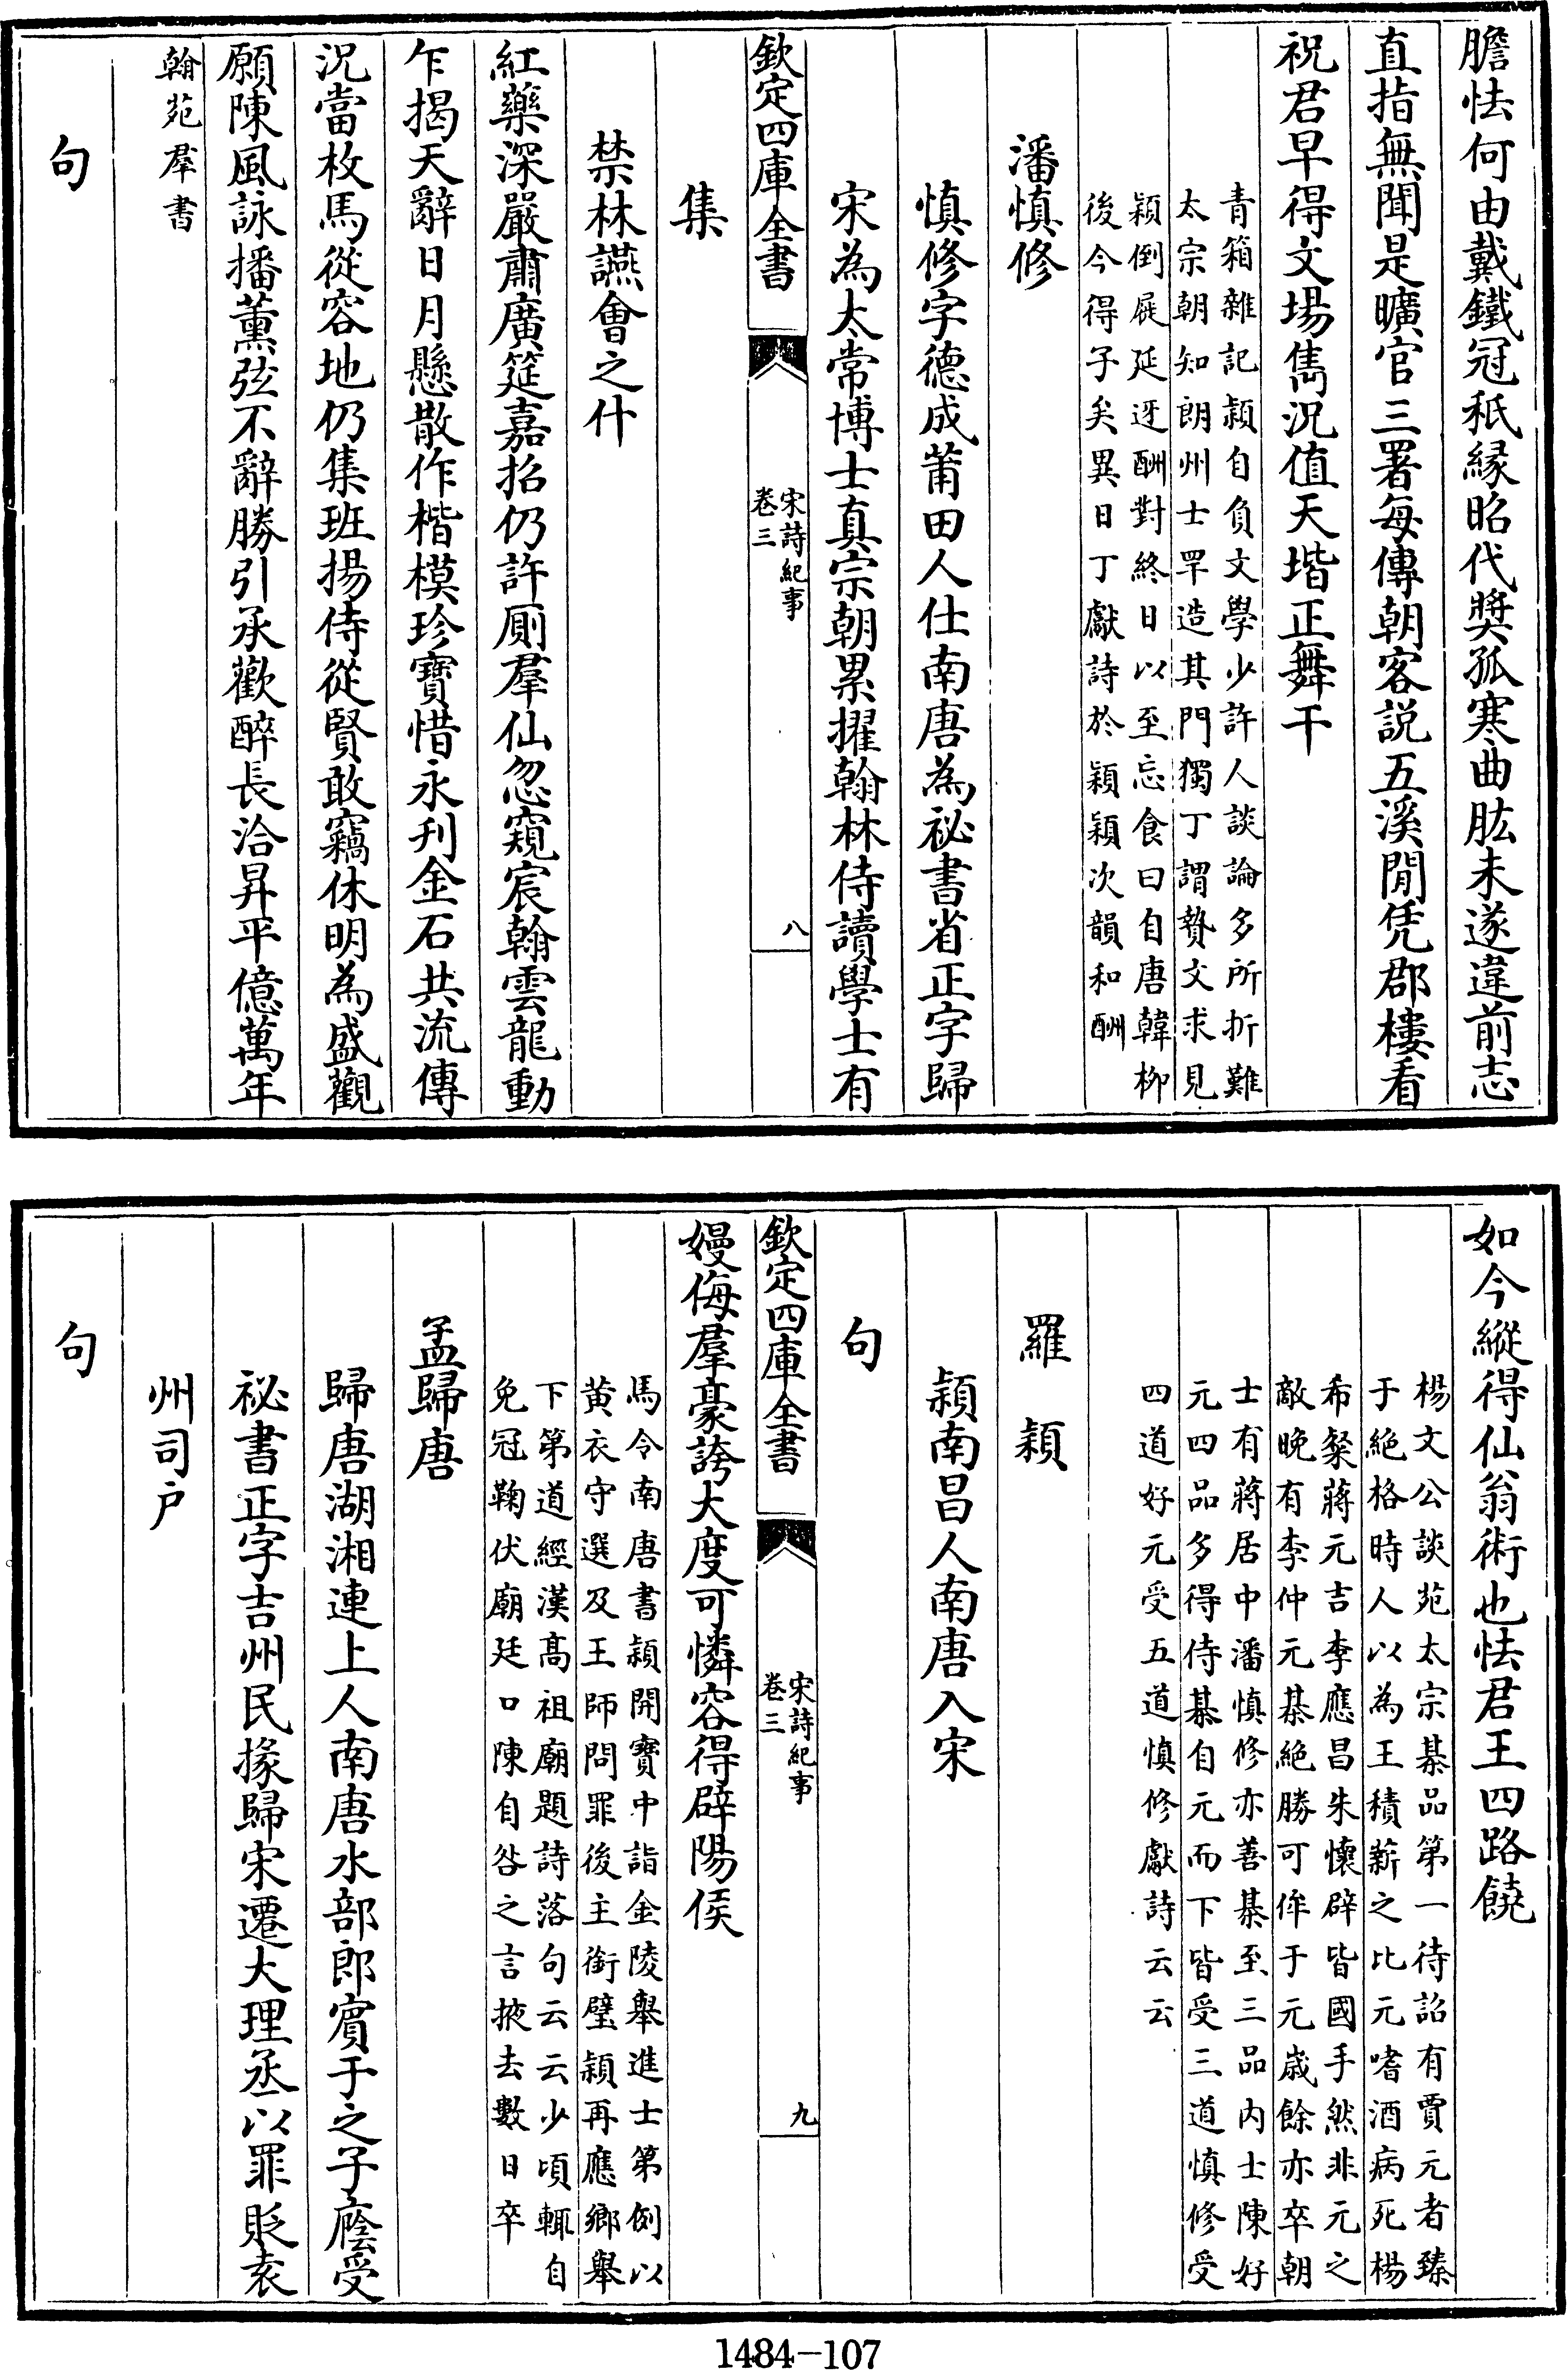 膽怯何由戴鐵冠秖緣昭代奬孤寒曲肱未遂違前志
直指無聞是曠官三署每傳朝客説五溪閒凭郡樓看
祝君早得文場雋況值天堦正舞干
青箱雜記頴自負文學少許人談論多所折難
太宗朝知朗州士罕造其門獨丁謂贄文求見
頴倒屐延迓酬對終日以至忘食曰自唐韓柳
後今得子矣異日丁獻詩於頴頴次韻和酬
潘慎修
慎修字德成莆田人仕南唐為祕書省正字歸
宋為太常博士真宗朝累擢翰林侍讀學士有
欽定四庫全書
宋詩紀事
卷三
八
集
禁林讌會之什
紅藥深嚴肅廣筵嘉招仍許厠羣仙忽窺宸翰雲龍動
乍揭天辭日月懸散作楷模珍寶惜永刋金石共流傳
況當枚馬從容地仍集班揚侍從賢敢竊休明為盛觀
願陳風詠播薫弦不辭勝引承歡醉長洽昇平億萬年
翰苑羣書
句
如今縱得仙翁術也怯君王四路饒
楊文公談苑太宗棊品第一待詔有賈元者臻
于絶格時人以為王積薪之比元嗜酒病死楊
希粲蔣元吉李應昌朱懷辟皆國手然非元之
敵晚有李仲元棊絶勝可侔于元歲餘亦卒朝
士有蔣居中潘慎修亦善棊至三品内士陳好
元四品多得侍棊自元而下皆受三道慎修受
四道好元受五道慎修獻詩云云
羅頴
頴南昌人南唐入宋
句
欽定四庫全書
宋詩紀事
卷三
九
嫚侮羣豪誇大度可憐容得辟陽侯
馬令南唐書頴開寶中詣金陵舉進士第例以
黄衣守選及王師問罪後主銜璧頴再應鄉舉
下第道經漢髙祖廟題詩落句云云少頃輒自
免冠鞠伏廟廷口陳自咎之言掖去數日卒
孟歸唐
歸唐湖湘連上人南唐水部郎賓于之子廕受
祕書正字吉州民掾歸宋遷大理丞以罪貶袁
州司户
句
1484-107